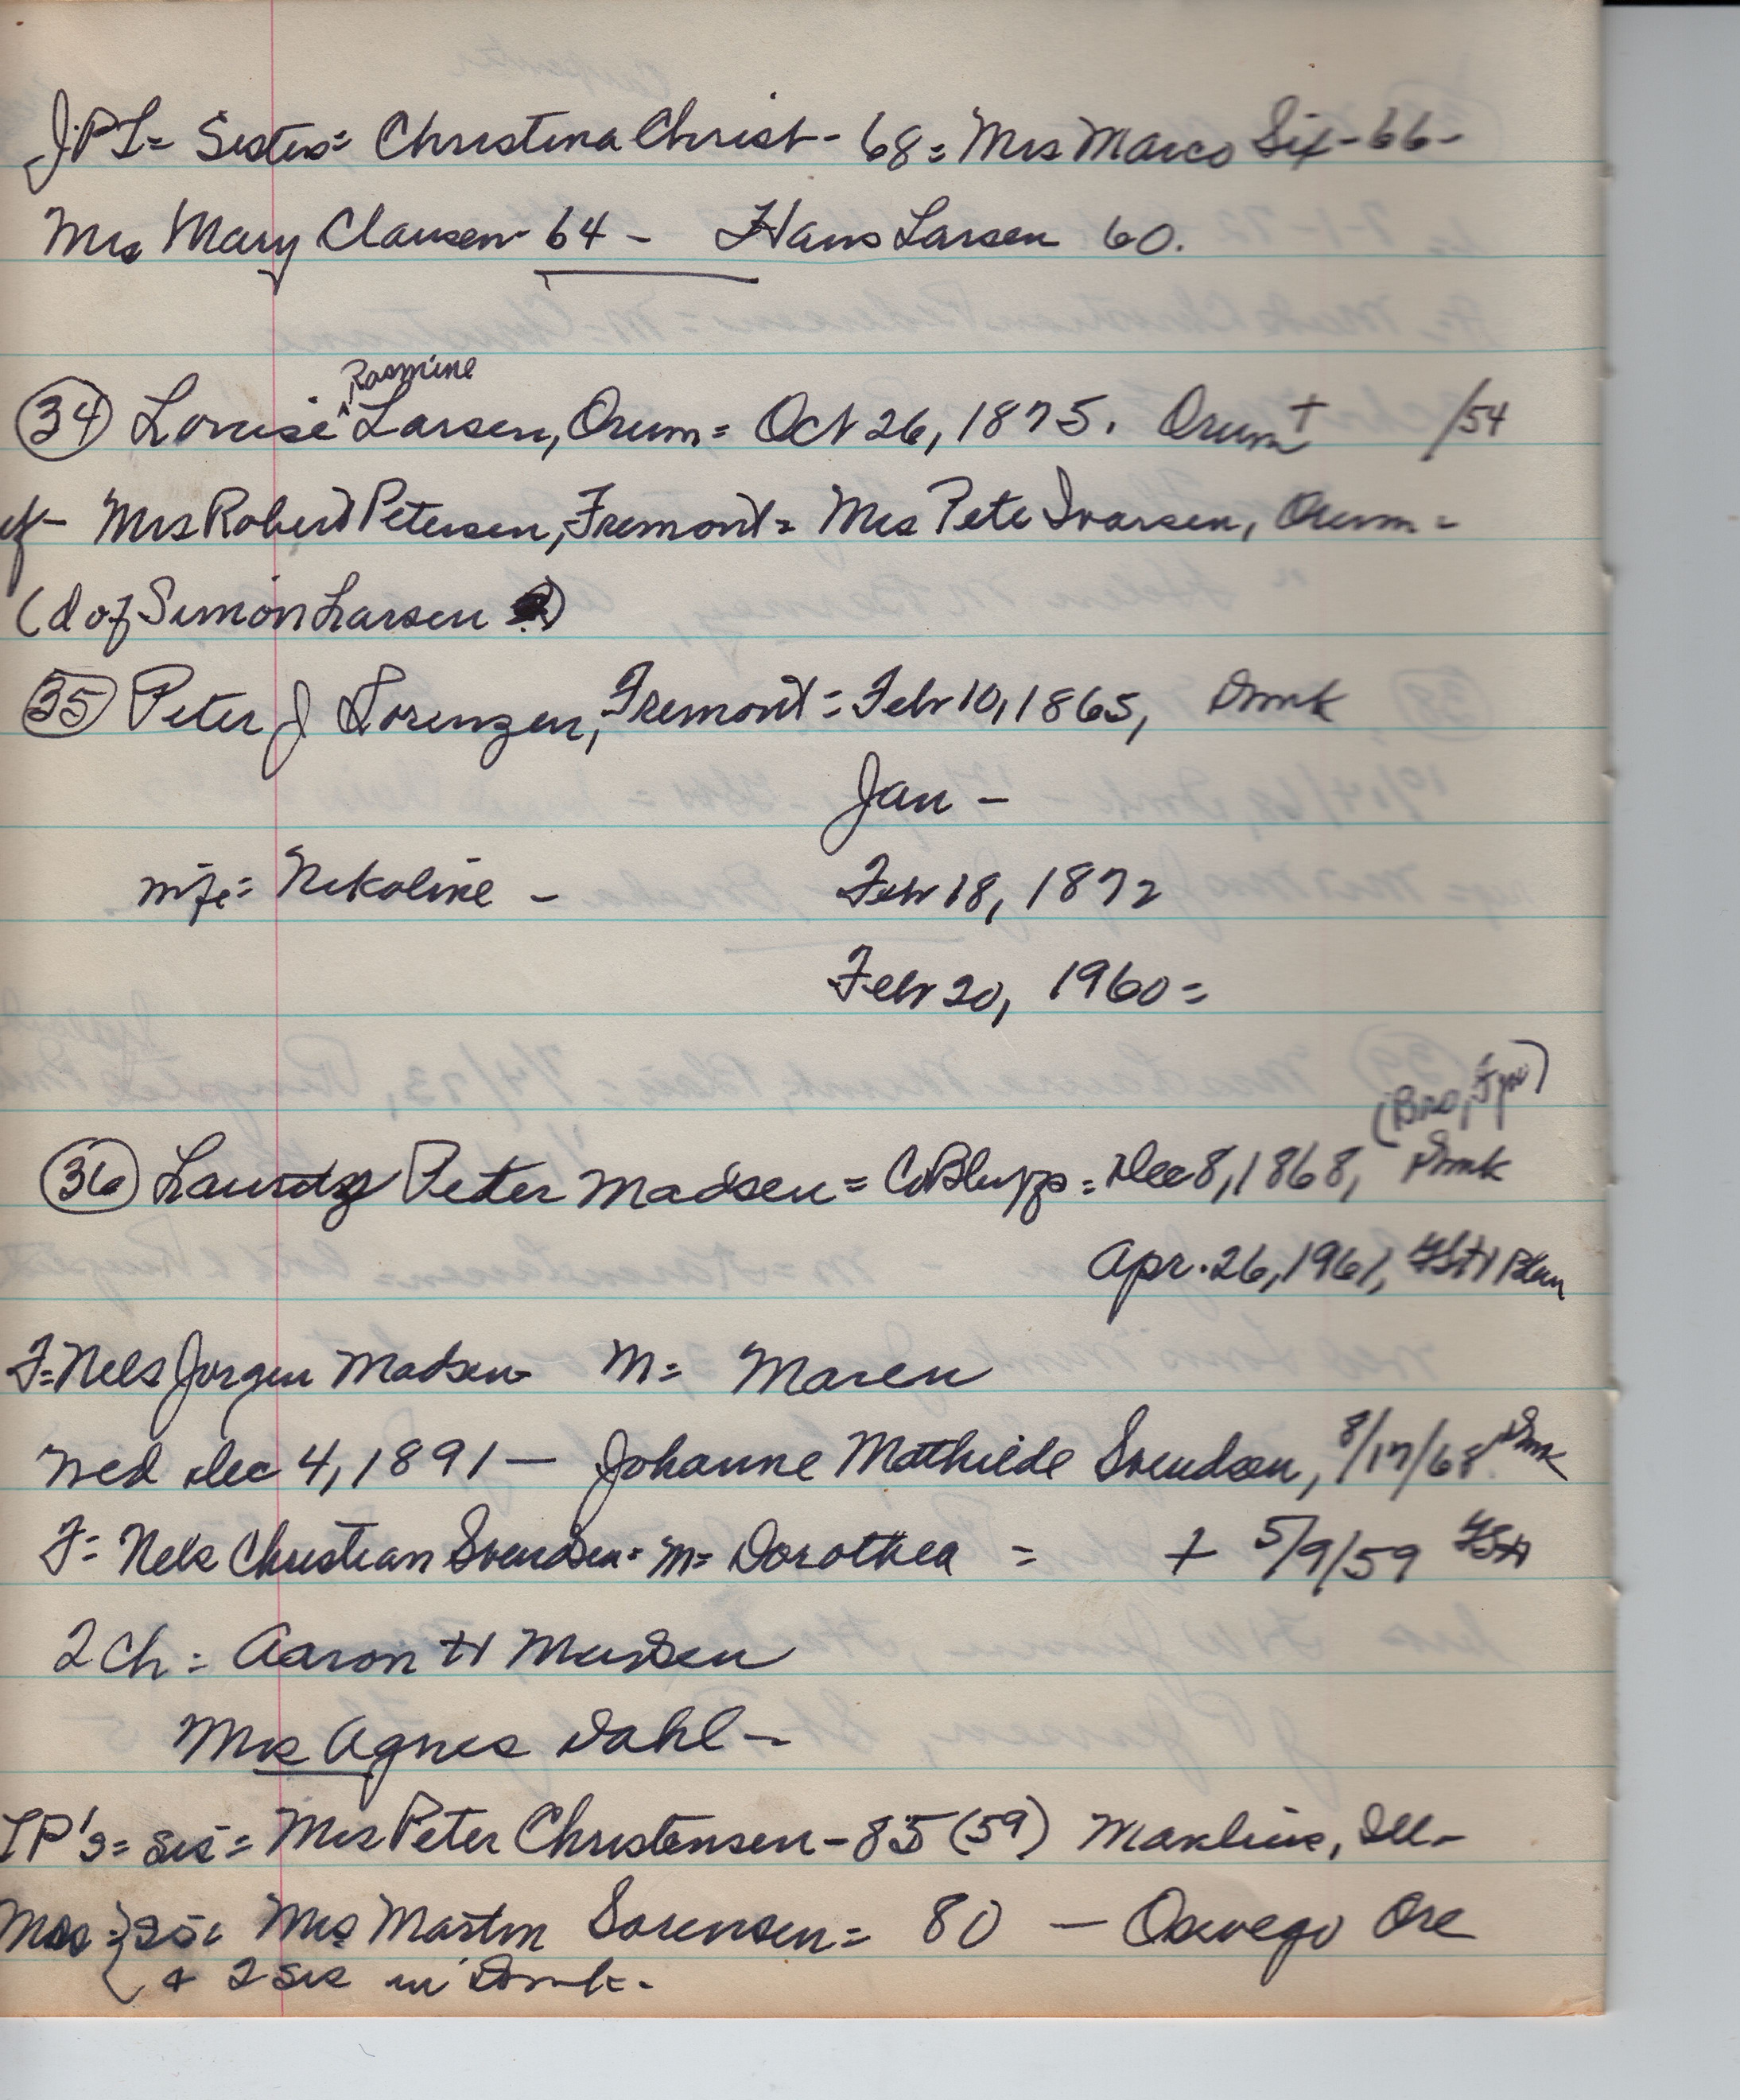 JPL = Sisters = Christina Christ - 68 = Mrs Marco Six - 66 -
Mrs Mary Clausen - 64 - Hans Larsen 60.
Rasmine
(34) Louise ^ Larsen, Orum = Oct 26, 1875. Orum + /54
cf - Mrs Robert Petersen, Fremont = Mrs Pete Ivarsen, Orum =
(d of Simon Larsen )
(35) Peter J Lorenzen, Fremont = Febr 10, 1865, Dmk
Jan -
wife = Nekoline - Febr 18, 1872
Febr 20, 1960 =
(Bro, Fyn)
(36) Lauritz Peter Madsen = Co Bluffs = Dec 8, 1868, Dmk
Apr. 26, 1961,
F = Nels Jorgen Madsen - M = Maren
Wed Dec 4, 1891 - Johanne Mathilde Svendsen, 8/17/68 Dmk
F = Nels Christian Svendsen = M = Dorothea = + 5/9/59
2 Ch = Aaron H Madsen
Mrs Agnes Dahl -
LP's = sis = Mrs Peter Christensen - 85 (59) Ill -
Mrs = sis Mrs Martin Sorensen = 80 - Oswego Ore
+ 2 sis in Dmk -